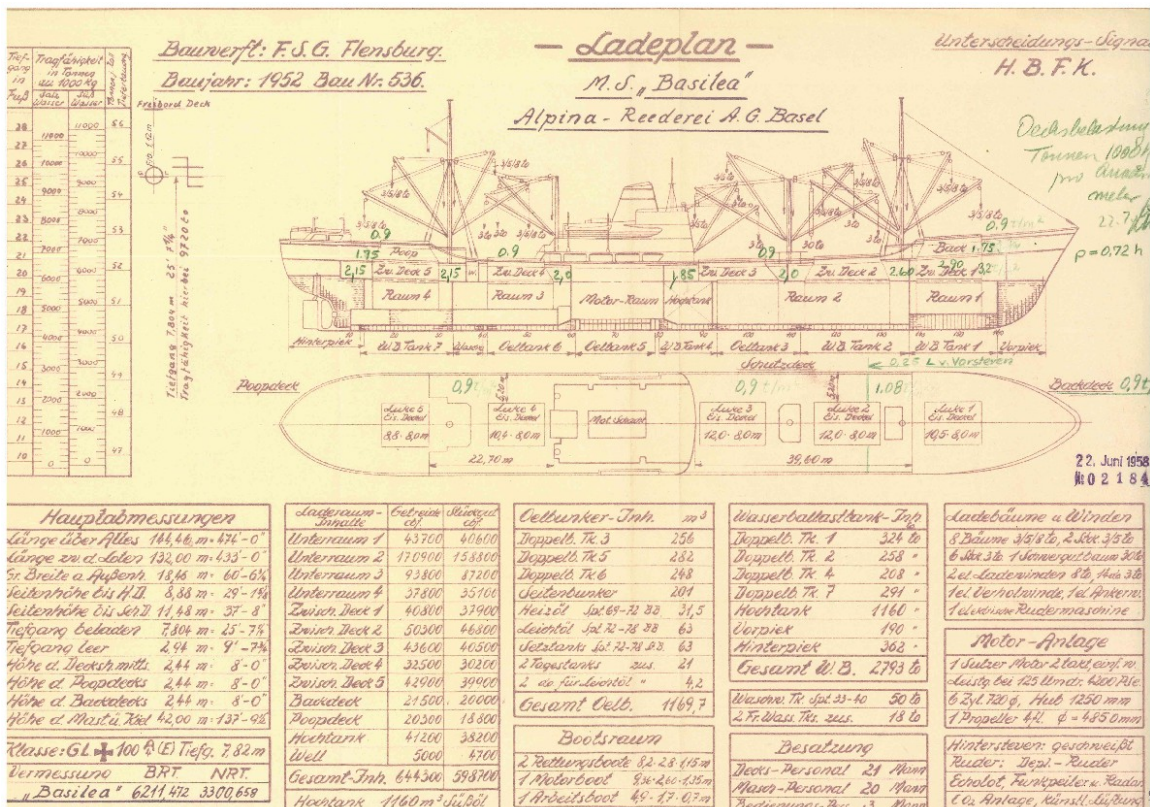 Bauwerft: F.S.G. Flensburg.
Baujahr: 1952 Bau Nr. 536.
— Ladeplan —
M.S. „Basilea"
Alpina - Reederei A.G. Basel
Unterscheidungs-Signal
H.B.F.K.
Tiefgang in Fuß
Tragfähigkeit in Tonnen zu 1000 kg
Salz Wasser
Süß Wasser
Freibord Deck
Tiefgang 7,804 m 25' 7 1/4"
Tragfähigkeit hierbei 9720 to
Tonnen 1000 k
22.7
p=0,72 h
3/5/8 to
0.9
0.9
0.9
0,9 t/m²
1.75 Poop
Back 1.75
2,15 Zw. Deck 5 2,15
Zw. Deck 4 2,0
1,85 Zw. Deck 3 2,0
Zw. Deck 2 2.60
Zw. Deck 1
2.90
Raum 4
Raum 3
Motor-Raum
Hochtank
Raum 2
Raum 1
Hinterpiek
W.B. Tank 7
Oeltank 6
Oeltank 5
W.B. Tank 4
Oeltank 3
W.B. Tank 2
W.B. Tank 1
Vorpiek
Schutzdeck
0.25 L v. Vorsteven
Poopdeck
0,9
0,9 t/m
1.08
Backdeck 0,9 t
Luke 5
8,8 · 8,0m
Luke 4
10,4 · 8,0m
Mot. Schacht
Luke 3
12,0 · 8,0m
Luke 2
12,0 · 8,0m
Luke 1
10,5 · 8,0m
22,70 m
39,60 m
22. Juni 1958
02184
Hauptabmessungen
Länge über Alles 144,46 m = 474'-0"
Länge zw. d. Loten 132,00 m = 433'-0"
Gr. Breite a. Außenh. 18,46 m = 60'-6¾"
Seitenhöhe bis H.D. 8,88 m = 29'-1⅝"
Seitenhöhe bis Sch.D. 11,48 m = 37'-8"
Tiefgang beladen 7,804 m = 25'-7¼"
Tiefgang leer 2,94 m = 9'-7¾"
Höhe d. Decks mitts. 2,44 m = 8'-0"
Höhe d. Poopdecks 2,44 m = 8'-0"
Höhe d. Backdecks 2,44 m = 8'-0"
Höhe d. Mast ü. Kiel 42,00 m = 137'-9½"
Klasse: GL ✠ 100 A (E) Tiefg. 7,82 m
Vermessung BRT. NRT.
„Basilea" 6211,472 3300,658
Laderaum-Inhalte Getreide cbf. Stückgut cbf.
Unterraum 1 43700 40600
Unterraum 2 170900 158800
Unterraum 3 93800 87200
Unterraum 4 37800 35100
Zwisch. Deck 1 40800 37900
Zwisch. Deck 2 50300 46800
Zwisch. Deck 3 43600 40500
Zwisch. Deck 4 32500 30200
Zwisch. Deck 5 42900 39900
Backdeck 21500 20000
Poopdeck 20300 18800
Hochtank 41200 38200
Well 5000 4700
Gesamt-Inh. 644300 598700
Hochtank 1160 m³ Süßöl
Oelbunker-Inh. m³
Doppelb. Tk 3 256
Doppelb. Tk 5 282
Doppelb. Tk 6 248
Seitenbunker 201
Heizöl Spt 69-72 BB 31,5
Leichtöl Spt 72-78 BB 63
Setztanks Spt 72-78 St.B. 63
2 Tagestanks zus. 21
2 do für Leichtöl " 4,2
Gesamt Oelb. 1169,7
Bootsraum
2 Rettungsboote 8,2·2,8·1,15 m
1 Motorboot
1 Arbeitsboot 4,9·1,7·0,7 m
Wasserballasttank-Inh. to
Doppelb. Tk. 1 324 to
Doppelb. Tk. 2 258 "
Doppelb. Tk. 4 208 "
Doppelb. Tk. 7 291 "
Hochtank 1160 "
Vorpiek 190 "
Hinterpiek 362 "
Gesamt W.B. 2793 to
Waschw. Tk. Spt. 33-40 50 to
2 Fr. Wass. Tks. zus. 18 to
Besatzung
Decks-Personal 21 Mann
Masch-Personal 20 Mann
Bedienungs-Per. 3 Mann
Ladebäume u. Winden
8 Bäume 3/5/8 to, 2 Stck 3/5 to
6 Stck 3 to 1 Schwergutbaum 30 to
2 el. Ladewinden 8 to, 14 do 3 to
1 el. Verholwinde, 1 el. Ankerw.
Rudermaschine
Motor-Anlage
1 Sulzer Motor 2 takt, einf. w.
Leistg. bei 125 Umdr. 4200 PSe
6 Zyl. 720 φ, Hub 1250 mm
1 Propeller 4 fl. φ = 4850 mm
Hintersteven: geschweißt
Ruder: Depl.-Ruder
Echolot, Funkpeiler u. Radar
CO₂ Anlage, Künstl. Lüftung